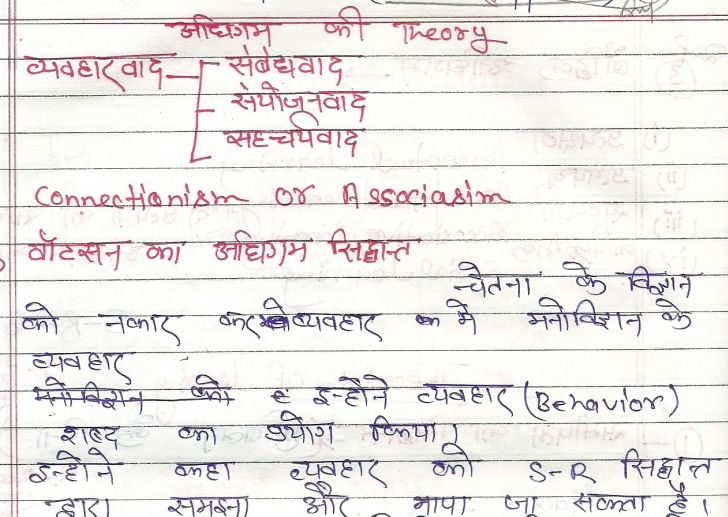 अधिगम की Theory
व्यवहारवाद संबंधवाद
संयोजनवाद
सहचर्यवाद
Connectionism or Associasim
वॉटसन का अधिगम सिद्धान्त
चेतना के विज्ञान
को नकार कर व्यवहार में मनोविज्ञान के
व्यवहार
मनोविज्ञान को इन्होंने व्यवहार (Behavior)
शब्द का प्रयोग किया।
इन्होंने कहा व्यवहार को S-R सिद्धान्त
द्वारा समझना और मापा जा सकता है।